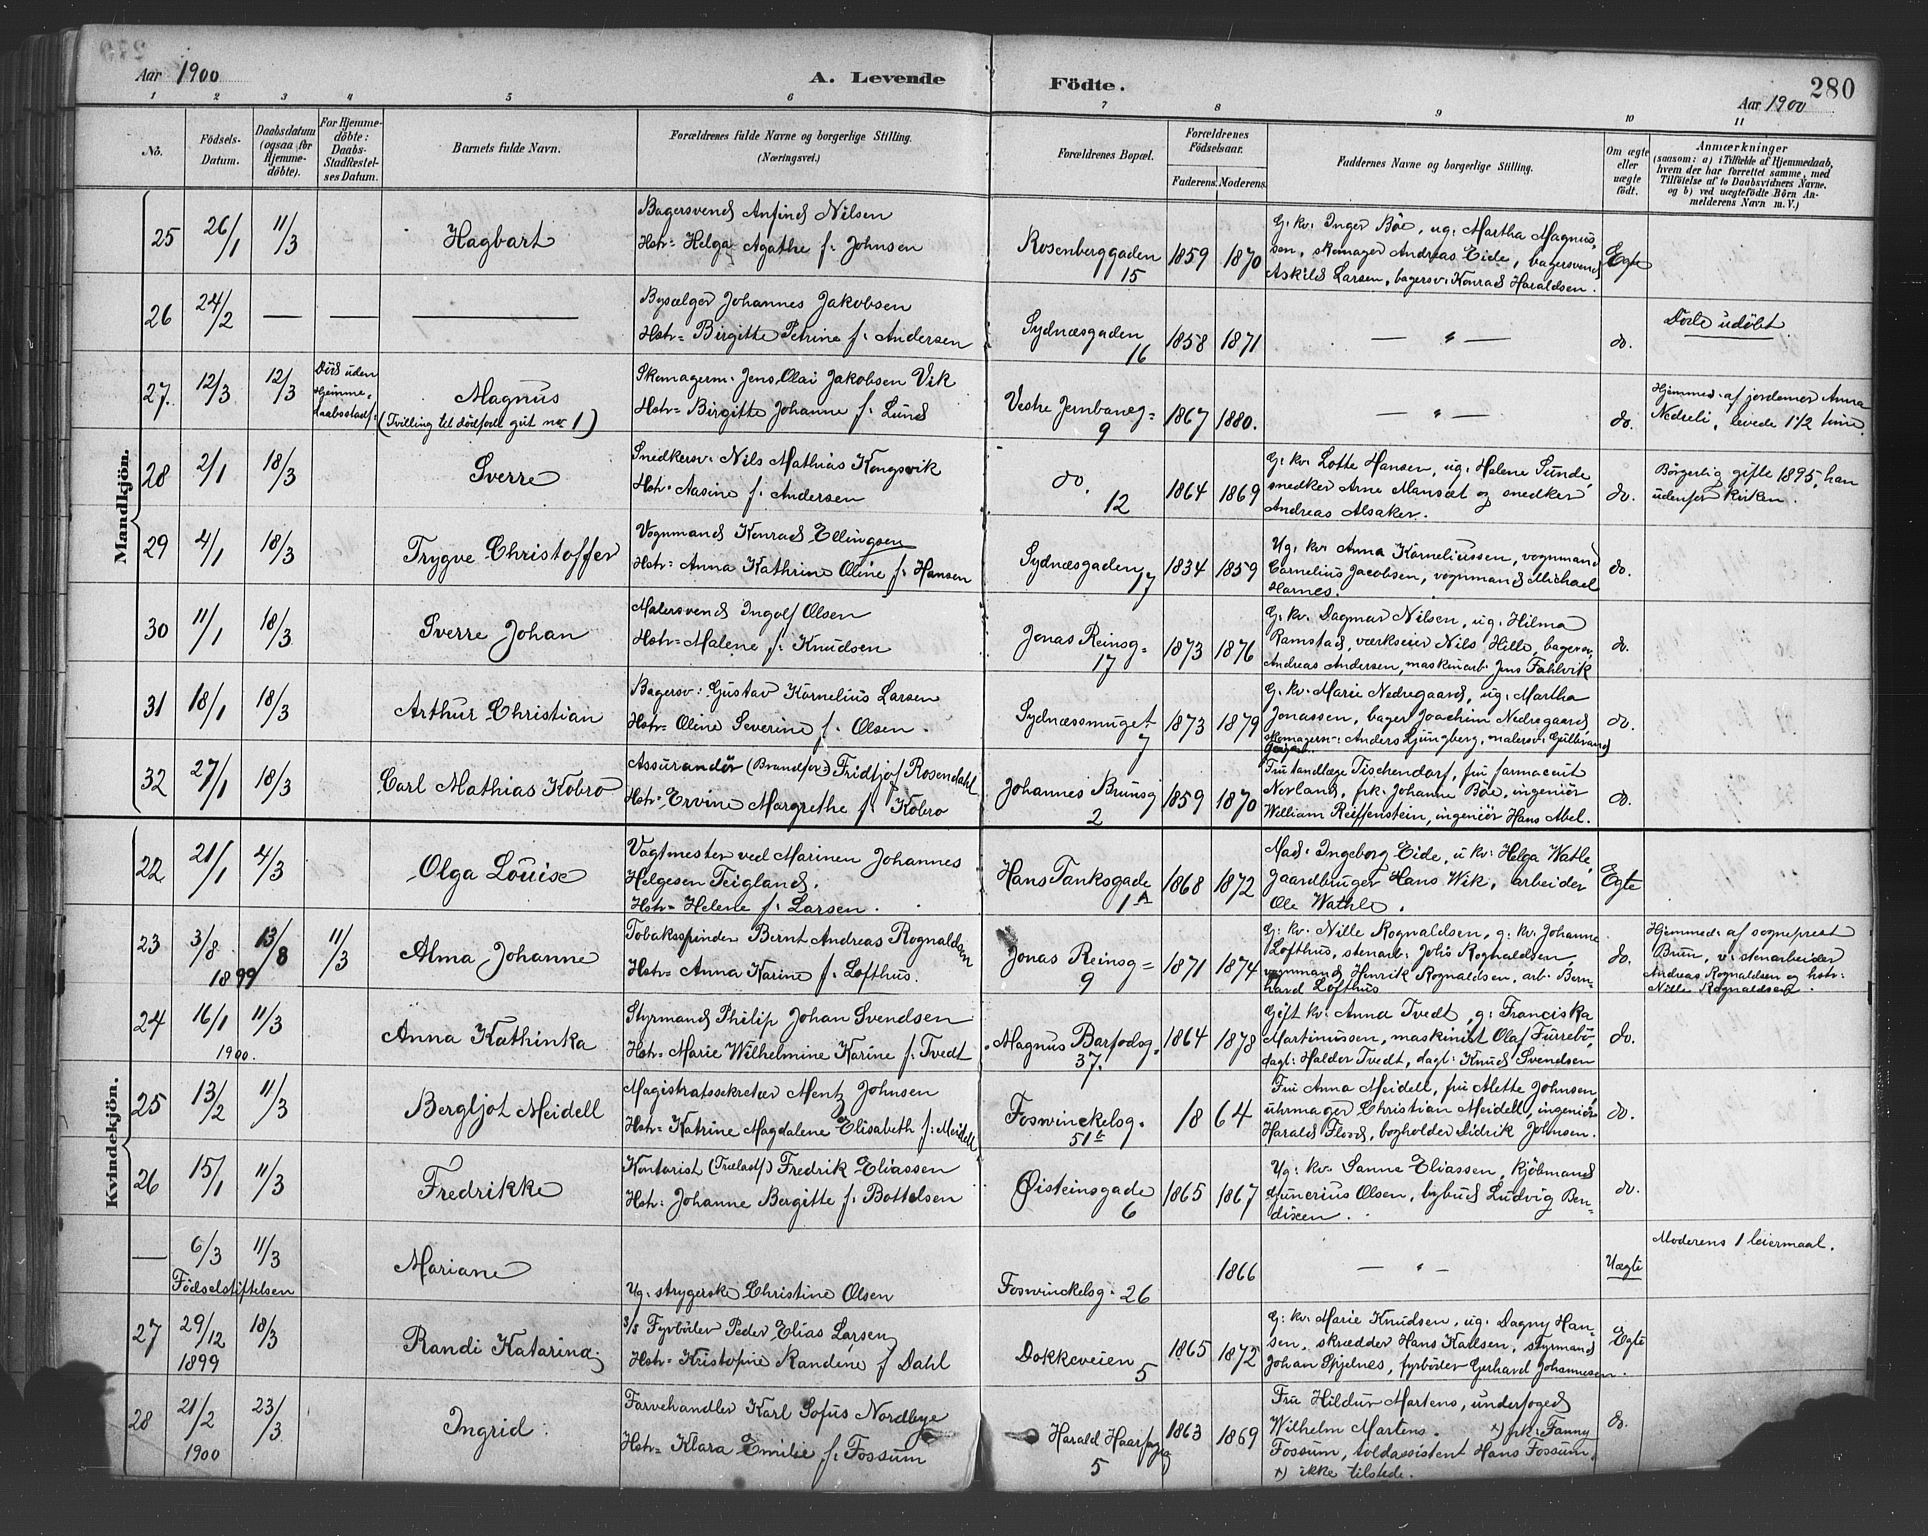 Aar 1900
A. Levende
Födte.
Aar 1900
280
1 2 3 4 5 6 7 8 9 10 11
No.
Födsels-
Datum.
Daabsdatum
(ogsaa for
Hjemme-
döbte).
For Hjemme-
döbte:
Daabs-
Stadfæstel-
ses Datum.
Barnets fulde Navn.
Forældrenes fulde Navne og borgerlige Stilling.
(Næringsvei.)
Forældrenes Bopæl.
Forældrenes
Födselsaar.
Faderens. Moderens.
Faddernes Navne og borgerlige Stilling.
Om ægte
eller
uægte
født.
Anmærkninger
(saasom: a) i Tilfælde af Hjemmedaab,
hvem der har forrettet samme, med
Tilföielse af to Daabsvidners Navne.
og b) ved uægtefödte Börn An-
melderens Navn m. V.)
Mandkjön.
25 26/1 11/3 Hagbart
Bagersvend Anfind Nilsen
Hstr= Helga Agathe f. Johnsen
Rosenberggaden
15
1859 1870
G. kv. Inger Böe, ug. Martha Magnus-
sen, skomager Andreas Eide, bagersvend
Askild Larsen, bagersv. Konrad Haraldsen.
Egte
26 24/2 — — —
Bysælger Johannes Jakobsen
Hstr= Birgitte Petrine f. Andersen
Sydnæsgaden
16
1858 1871
— " —
do.
Döde udöbt
27. 12/3 12/3
Död uden
Hjemme-
daabsstadf.
Magnus
(Tvilling til dödfödt gut no 1)
Skomagerm. Jens Olai Jakobsen Vik
Hstr= Birgitte Johanne f. Lund
Vestre Jernbaneg=
9
1867 1880.
— " —
do.
Hjemmed. af jordemor Anna
Nedreli, levede 1 1/2 time.
28 2/1 18/3 Sverre
Snedkersv. Nils Mathias Kongsvik
Hstr. Aasine f. Andersen
do.
12
1864 1869
G. kv. Lotte Hansen, ug. Helene Sunde,
snedker Arne Mansæt og snedker
Andreas Alsaker.
do.
Börgerlig gifte 1895, han
udenfor kirken.
29 4/1 18/3 Trygve Christoffer
Vognmand Konrad Ellingsen
Hstr. Anna Kathrine Oline f. Hansen
Sydnæsgaden
17
1834 1859
Ug. kv. Anna Korneliussen, vognmand
Cornelius Jacobsen, vognmand Michael
Hornes.
do.
30 11/1 18/3 Sverre Johan
Malersvend Ingolf Olsen
Hstr= Malene f. Knudsen
Jonas Reinsg=
17
1873 1876
G. kv. Dagmar Nilsen, ug. Hilma
Ramstad, værkseier Nils Hille, bagersv.
Andreas Andersen, maskinarb. Jens Fahlvik
do.
31 18/1 18/3 Arthur Christian
Bagersv: Gustav Kornelius Larsen
Hstr= Oline Severine f. Olsen.
Sydnæssmuget
7
1873 1879
G. kv. Marie Nedregaard, ug. Martha
Jonassen, bager Joachim Nedregaard,
skomagersv. Anders Ljungberg, malersv. Gulbrand
do.
32 27/1 18/3 Carl Mathias Kobro
Assurandör (Brandfor.) Fridtjof Rosendahl
Hstr. Ervine Margrethe f. Kobro
Johannes Brunsg
2
1859 1870
Fru tandlæge Tischendorf, fru farmaceut
Norland, frk. Johanne Böe, ingeniör
William Reiffenstein, ingeniör Hans Abel.
do.
Kvindekjön.
22 21/1 4/3 Olga Louise
Vagtmester ved Marinen Johannes
Helgesen Teigland.
Hstr= Helene f. Larsen.
Hans Tanksgade
1A
1868 1872
Mad. Ingeborg Eide, u kv. Helga Watle,
gaardbruger Hans Wik, arbeider
Ole Wathle.
Egte
23 3/8 13/8 11/3
1899
Alma Johanne
Tobakspinder Bernt Andreas Rognaldsen
Hstr= Anna Karine f. Lofthus.
Jonas Reinsg=
9
1871 1874
G. kv. Nille Rognaldsen, g. kv. Johanne
Lofthus, stenarb. Johs Rognaldsen,
vognmand Hinrik Rognaldsen, arb. Bern-
hard Lofthus
do.
Hjemmed. af sogneprest
Bruun, v. stenarbeider
Andreas Rognaldsen og hstr.
Nille Rognaldsen.
24 16/1 11/3
1900.
Anna Kathinka
Styrmand Philip Johan Svendsen
Hstr= Marie Wilhelmine Karine f. Tvedt
Magnus Barfodsg.
37.
1864 1878
Gift kv. Anna Tvedt, g. Franciska
Martinussen, maskinist Olaf Furrebö,
dagl. Halder Tvedt, dagl. Knud Svendsen
do.
25 13/2 11/3 Bergljot Meidell
Magistratssekretær Mentz Johnsen
Hstr= Katrine Magdalene Elisabeth f. Meidell
Foswinckelsg.
51b
1864
Fru Anna Meidell, fru Alette Johnsen,
uhrmager Christian Meidell, ingeniör
Harald Flood, bogholder Didrik Johnsen.
do.
26 15/1 11/3 Fredrikke
Kontorist (Trælastf.) Fredrik Eliassen
Hstr. Johanne Bergitte f. Bottolsen
Øisteinsgade
6
1865 1867
Ug. kv. Sanna Eliassen, kjöbmand
Junerius Olsen, bybud Ludvig Ben-
dixen.
do.
— 6/3 11/3
Födselstiftelsen
Mariane
Ug. strygerske Christine Olsen
Foswinckelsg. 26
1866
— " —
Uægte
Moderens 1 leiermaal.
27 29/12 18/3
1899
Randi Katarina
S/S Fyrböder Peder Elias Larsen
Hstr= Kristofine Randine f Dahl
Dokkeveien
5
1865 1872
G. kv. Marie Knudsen, ug. Dagny Han-
sen, skrædder Hans Karlsen, styrmand
Johan Spjelnes, fyrböder Gerhard Johannesen.
Egte
28 21/2 23/3
1900
Ingrid.
Farvehandler Karl Sofus Nordbye
Hstr= Klara Emilie f. Fossum
Harald Haarfagrsg
5
1863 1869
Fru Hildur Martens, underfoged
Wilhelm Martens. x) frk. Fanny
Fossum, toldassistent Hans Fossum.
x) ikke tilstede.
do.